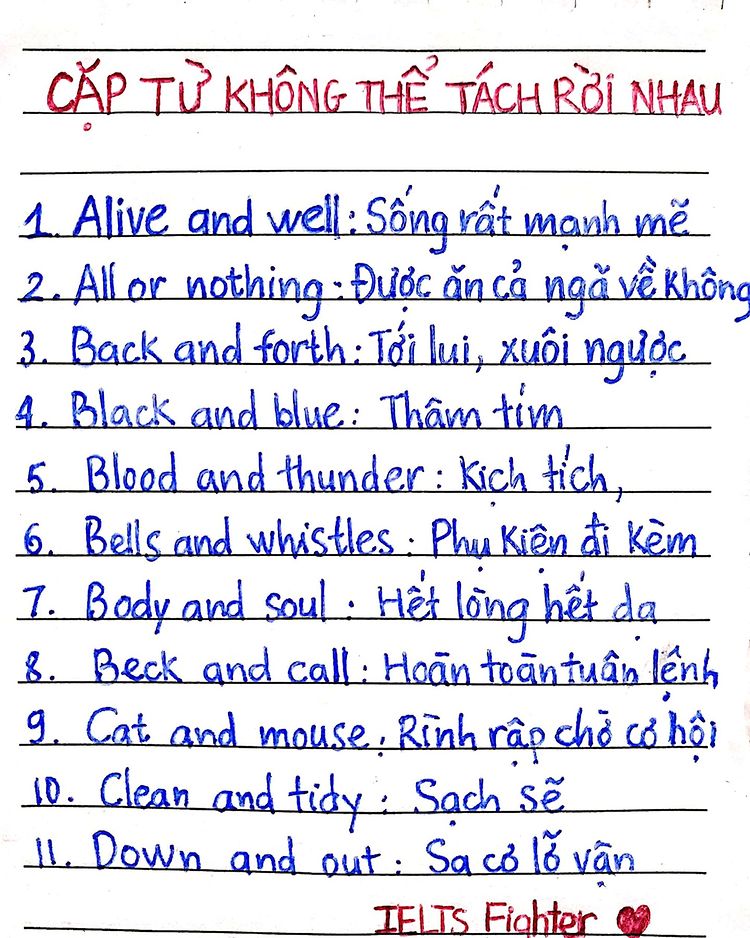 CẶP TỪ KHÔNG THỂ TÁCH RỜI NHAU
1. Alive and well: Sống rất mạnh mẽ
2. All or nothing: Được ăn cả ngã về không
3. Back and forth: Tới lui, xuôi ngược
4. Black and blue: Thâm tím
5. Blood and thunder: Kịch tích,
6. Bells and whistles: Phụ kiện đi kèm
7. Body and soul: Hết lòng hết dạ
8. Beck and call: Hoàn toàn tuân lệnh
9. Cat and mouse: Rình rập chờ cơ hội
10. Clean and tidy: Sạch sẽ
11. Down and out: Sa cơ lỡ vận
IELTS Fighter